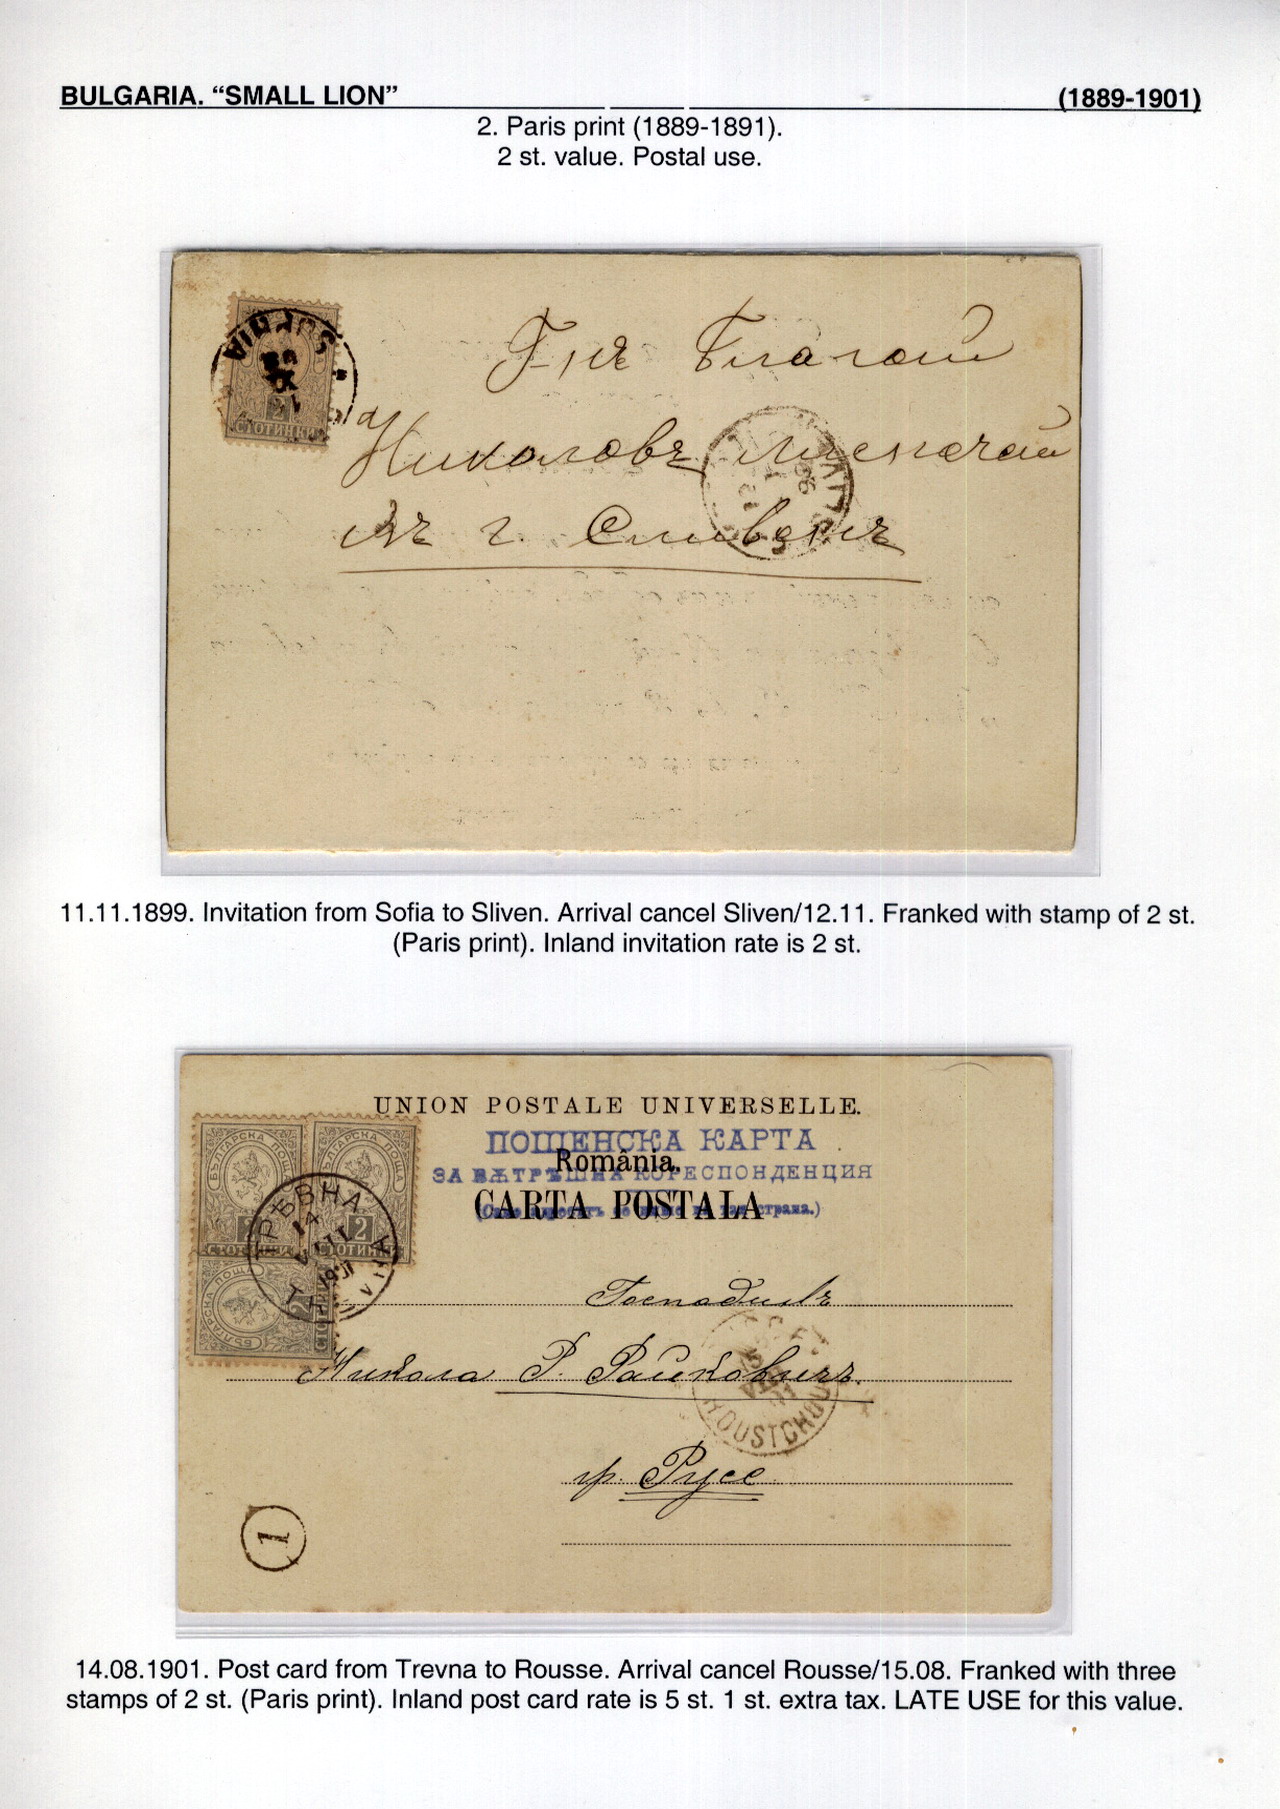 BULGARIA. “SMALL LION” (1889-1901)
2. Paris print (1889-1891).
2 st. value. Postal use.
СОФИЯ
2
СТОТИНКИ
Г-нъ
Николовъ
въ г. Сливенъ
11.11.1899. Invitation from Sofia to Sliven. Arrival cancel Sliven/12.11. Franked with stamp of 2 st.
(Paris print). Inland invitation rate is 2 st.
UNION POSTALE UNIVERSELLE.
ПОЩЕНСКА КАРТА
România.
ЗА ВѪТРѢШНА КОРЕСПОНДЕНЦИЯ
CARTA POSTALA
БЪЛГАРСКА ПОЩА
2
СТОТИНКИ
БЪЛГАРСКА ПОЩА
2
СТОТИНКИ
БЪЛГАРСКА ПОЩА
2
ТРѢВНА
14
VIII
1901
Господинъ
Никола Р. Рашковичъ.
15
VIII
01
ROUSTCHOUK
гр. Русе
1
14.08.1901. Post card from Trevna to Rousse. Arrival cancel Rousse/15.08. Franked with three
stamps of 2 st. (Paris print). Inland post card rate is 5 st. 1 st. extra tax. LATE USE for this value.